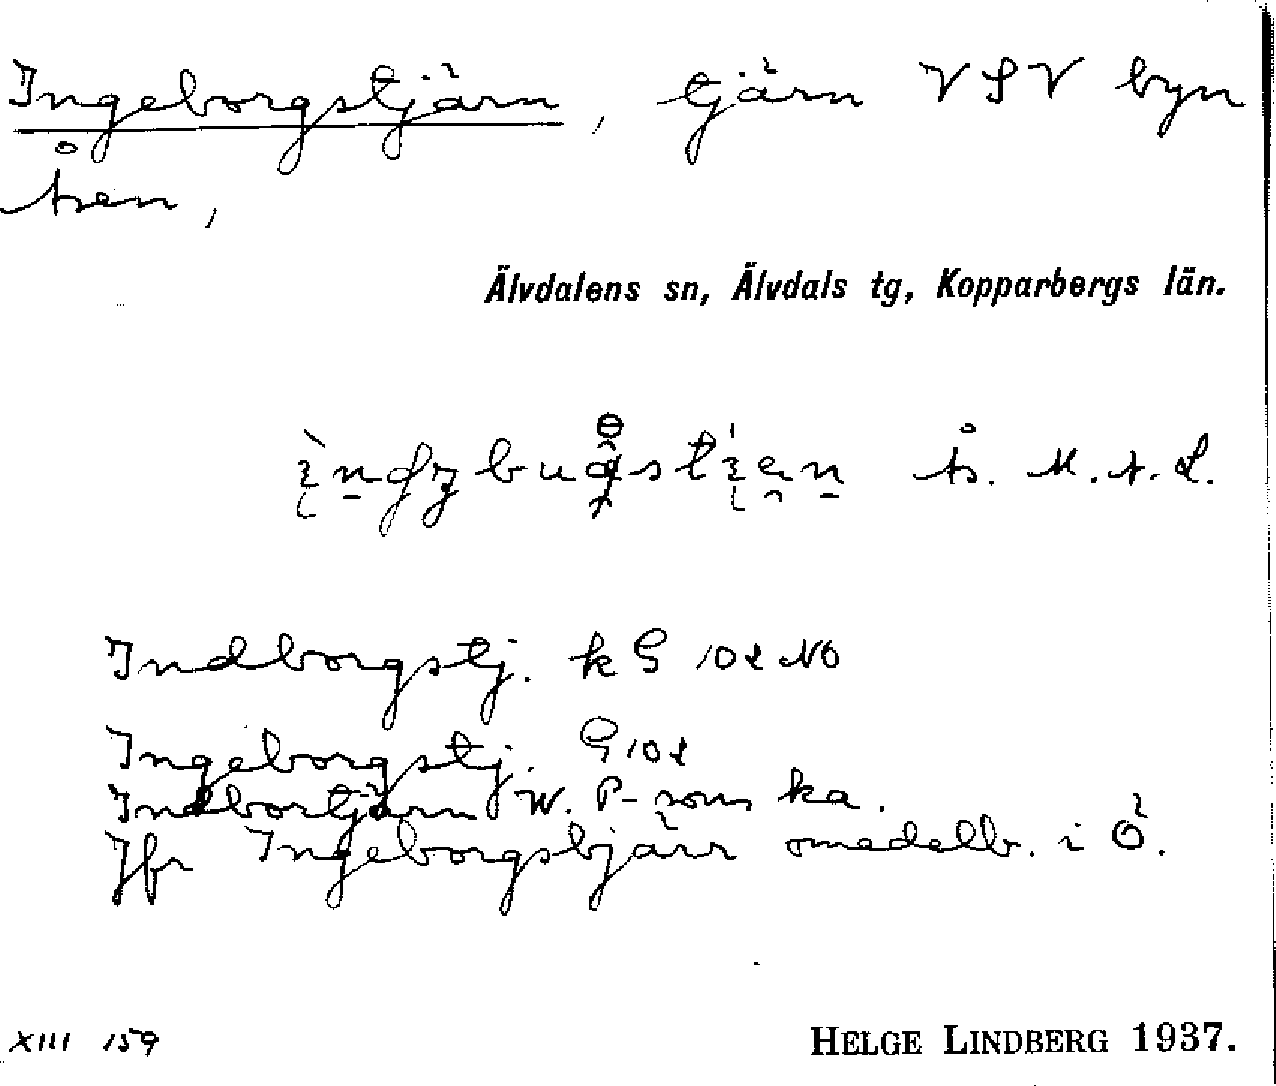 Ingeborgstjärn, tjärn VSV byn
Åsen,
Älvdalens sn, Älvdals tg, Kopparbergs län.
Ås. M.A.L.
Indborgstj. kG 102 NO
Ingeborgstj. G 102
Indbortjärn W. P-sons ka.
Jfr Ingeborgsbjärr omedelb. i Ö.
XIII 159
HELGE LINDBERG 1937.